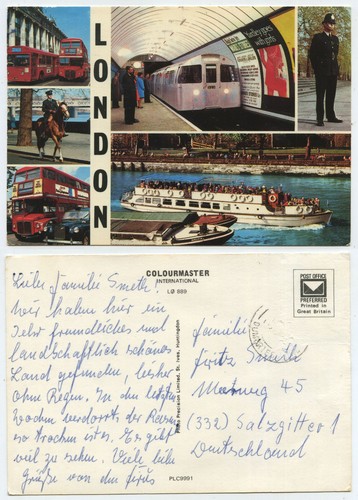 LONDON
COLOURMASTER
INTERNATIONAL
LØ 889
POST OFFICE
PREFERRED
Printed in
Great Britain
Photo Precision Limited, St. Ives, Huntingdon
PLC9991
Liebe Familie Smith!
Wir haben hier ein
sehr freundliches und
landschaftlich schönes
Land gefunden, bisher
ohne Regen. In den letzten
Wochen verdorrt der Rasen
so trocken ist es. Es gibt
viel zu sehen. Viele liebe
Grüße von den
Familie
Fritz Smith
45
(332) Salzgitter 1
Deutschland